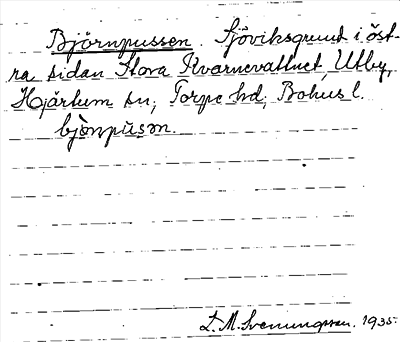 Björnpussen. Sjöviksgrund i öst-
ra sidan Stora Kvarnevattnet, Utby,
Hjärtum sn, Torpe hd, Bohus l.
bjö̀npu̇sən.
L. M. Svenungsson. 1935.